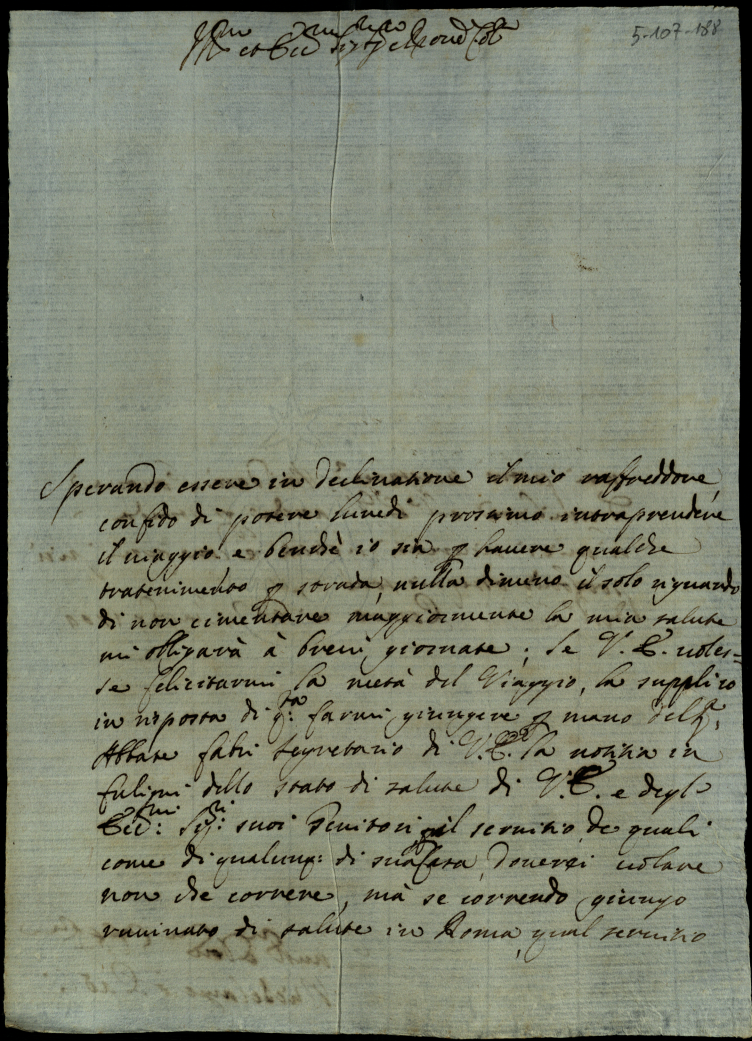 5-107-188
Ill.mo et Ecc.mo Sig.r Sig.r e Pron Col.mo
Sperando essere in declinatione il mio raffreddore,
confido di potere lunedi prossimo intraprendere
il viaggio e benche io sia p havere qualche
tratenimento p strada, nulla dimeno il solo riguardo
di non cimentare maggiormente la mia salute
mi obligarà à brevi giornate; Se V. E. voles=
se felicitarmi la metà del Viaggio, la supplico
in risposta di q.ta farmi giungere p mano del S.r
Abbate fabri segretario di V. E. la notitia in
fuligni dello stato di salute di V. E. e degl'
Ecc.mi Sig.ri suoi Genitori, p il servitio de quali
come di qualunq: di sua Casa, doverei volare
non che correre, mà se correndo giungo
ruvinato di salute in Roma, qual servitio